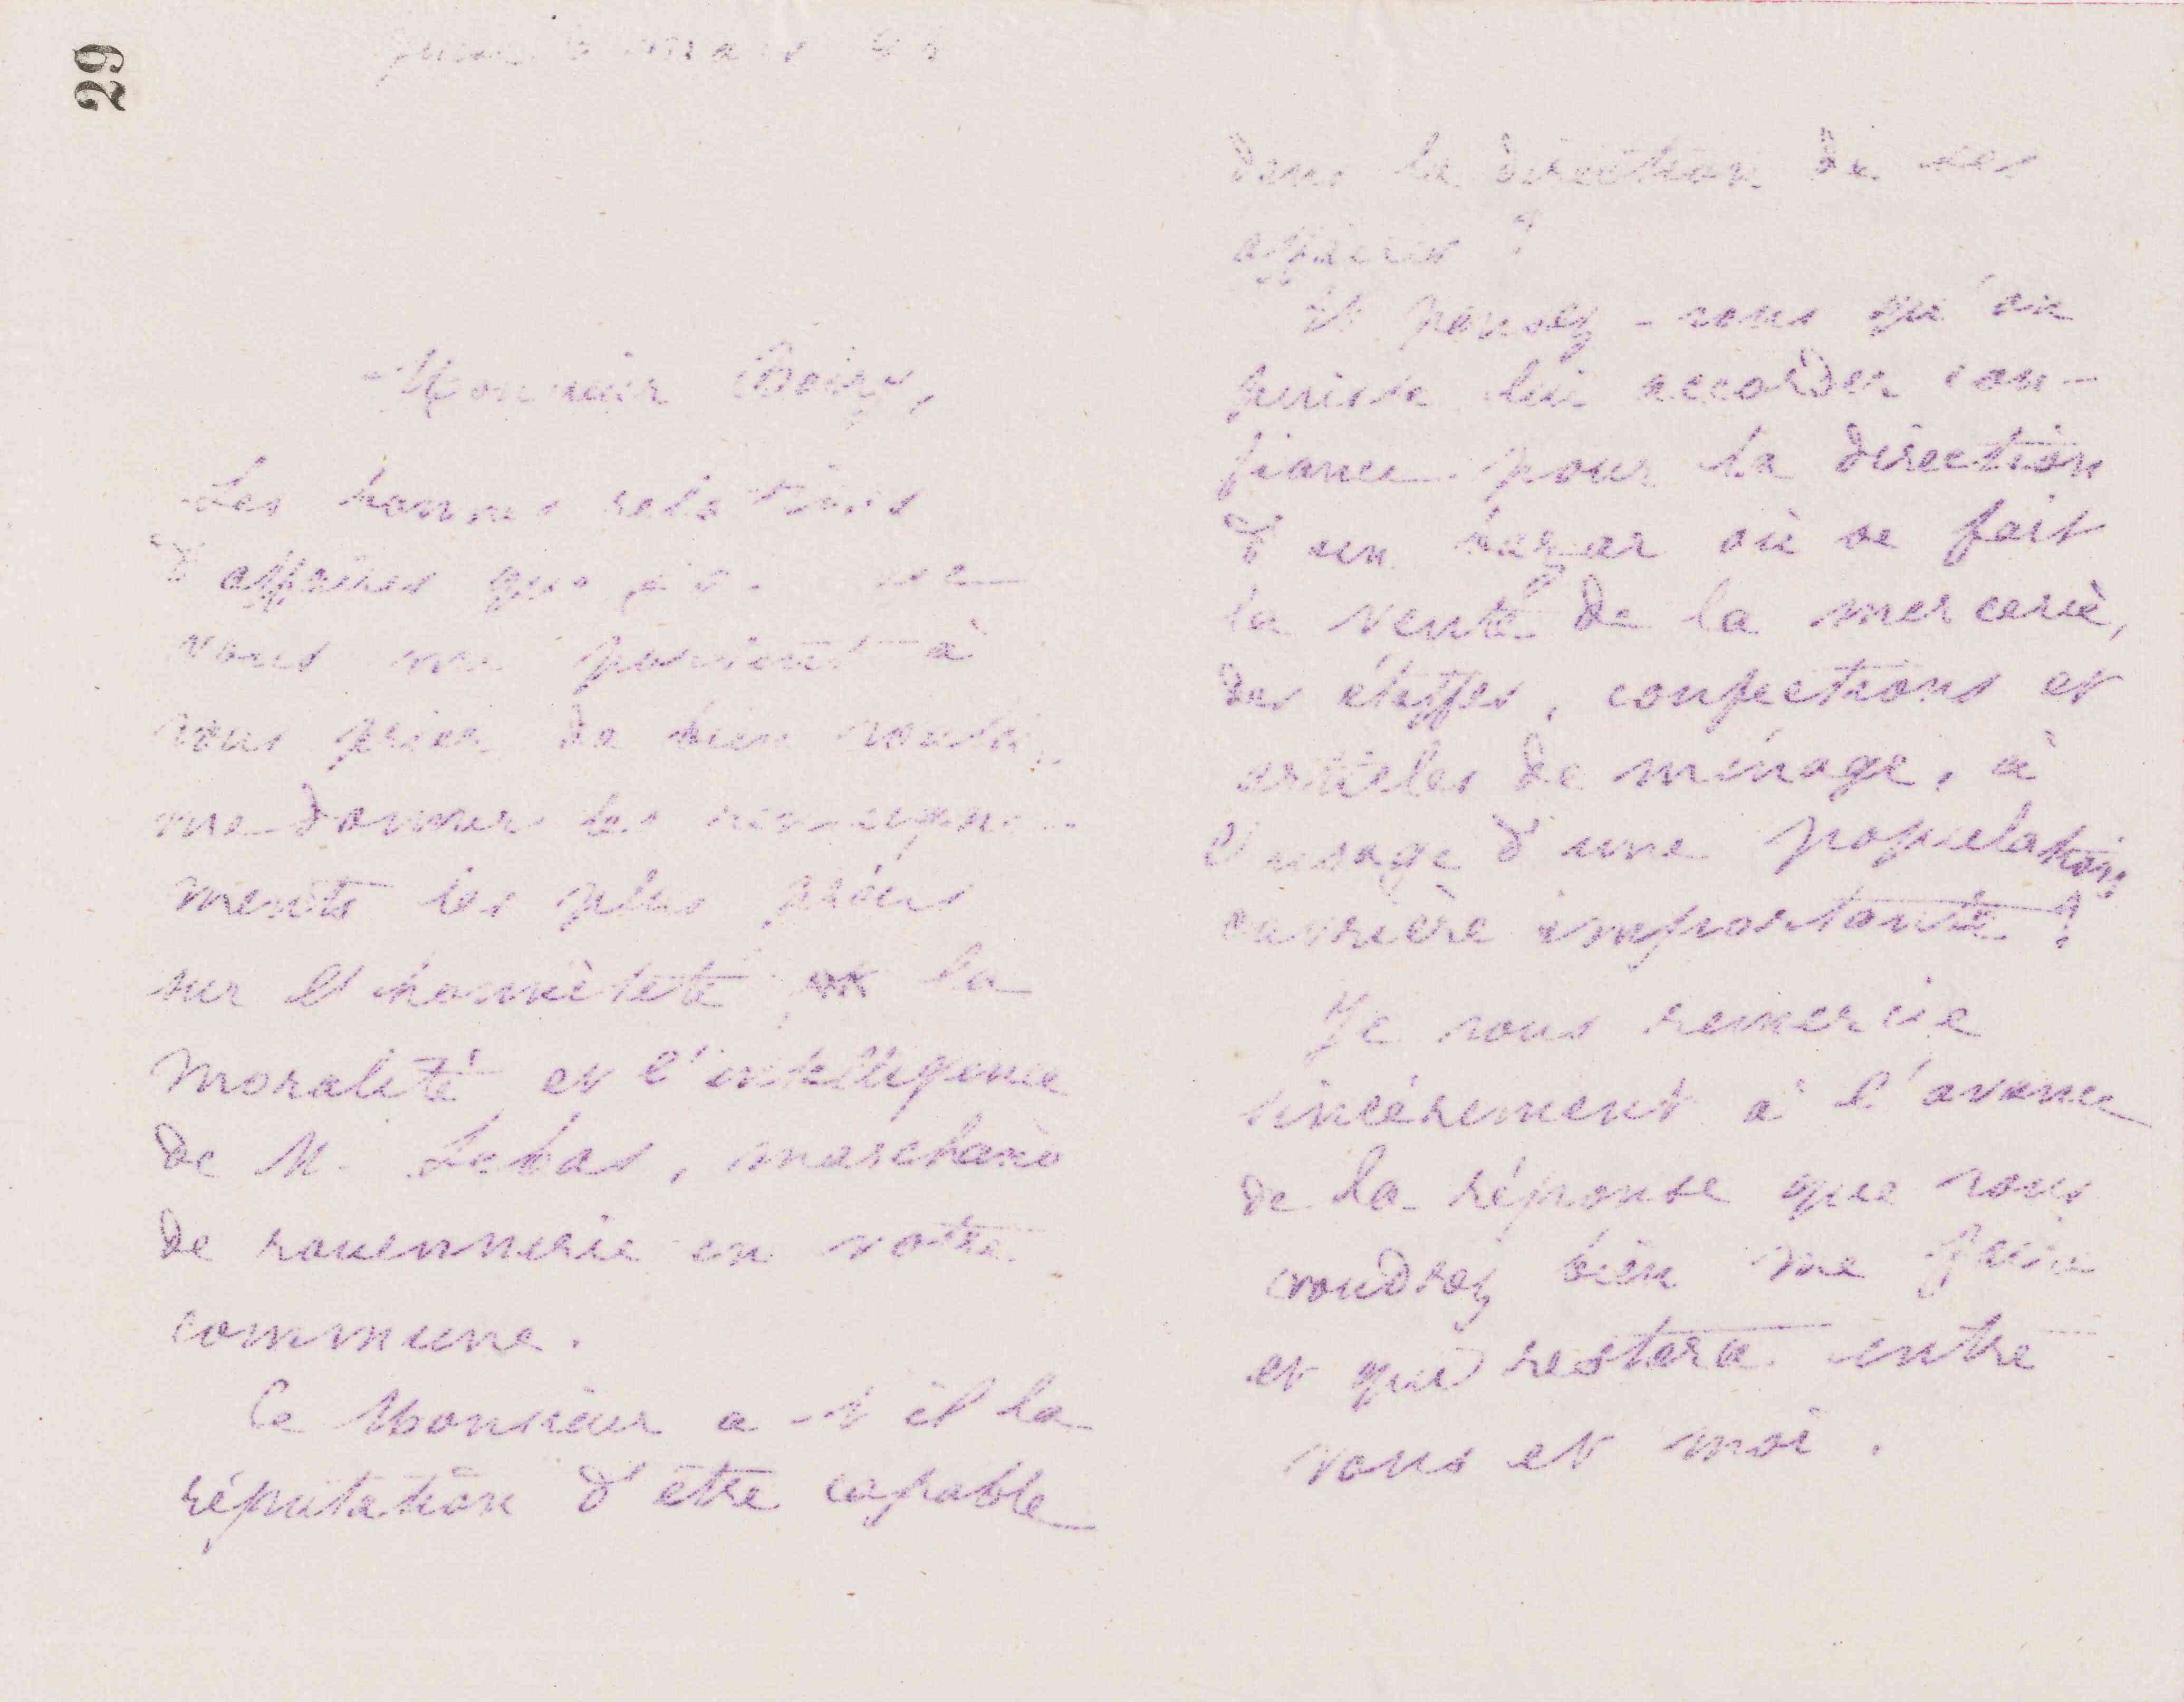 29
mars
Monsieur
Les bonnes relations
d'affaires que j'ai
vous me poussent à
vous prier de bien vouloir
me donner les renseigne-
ments les plus précis
sur l'honnêteté, la
moralité et l'intelligence
de M. Lebas, marchand
de rouennerie en votre
commune.
Ce Monsieur a-t il la
réputation d'être capable
dans la direction de ses
affaires ?
Et pensez-vous qu'on
puisse lui accorder con-
fiance pour la direction
d'un bazar où se fait
la vente de la mercerie,
des étoffes, confections et
articles de ménage, à
l'usage d'une population
ouvrière importante ?
Je vous remercie
sincèrement à l'avance
de la réponse que vous
voudrez bien me faire
et qui restera entre
vous et moi.